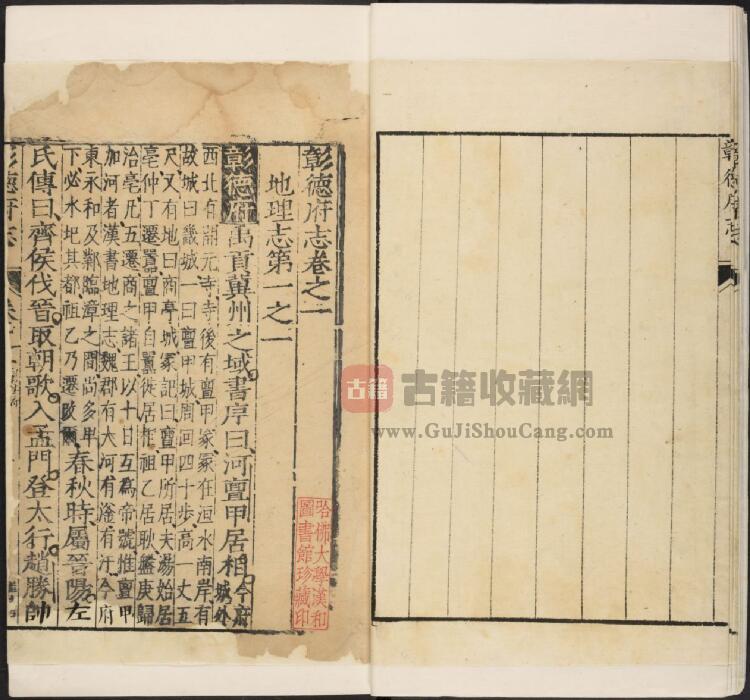 彰德府志
彰德府志卷之一
地理志第一之一
彰德府禹貢冀州之域書序曰河亶甲居相今府城外
西北有開元寺寺後有亶甲冢冢在洹水南岸有
故城曰畿城一曰亶甲城周回四十步高一丈五
尺又有地曰商亭城冢記曰亶甲所居夫湯始居
亳仲丁遷囂亶甲自囂徙居相祖乙居耿盤庚歸
治亳凡五遷商之諸王以十日互為帝號惟亶甲
加河者漢書地理志魏郡有大河有滏有汙今府
東永和及鄴臨漳之間尚多卑
下必水圮其都祖乙乃遷
春秋時屬晉陽左
氏傳曰齊侯伐晉取朝歌入孟門登太行趙勝帥
彰德府志
哈佛大學漢和
圖書館珍藏印
古籍
古籍收藏網
www.GuJiShouCang.com